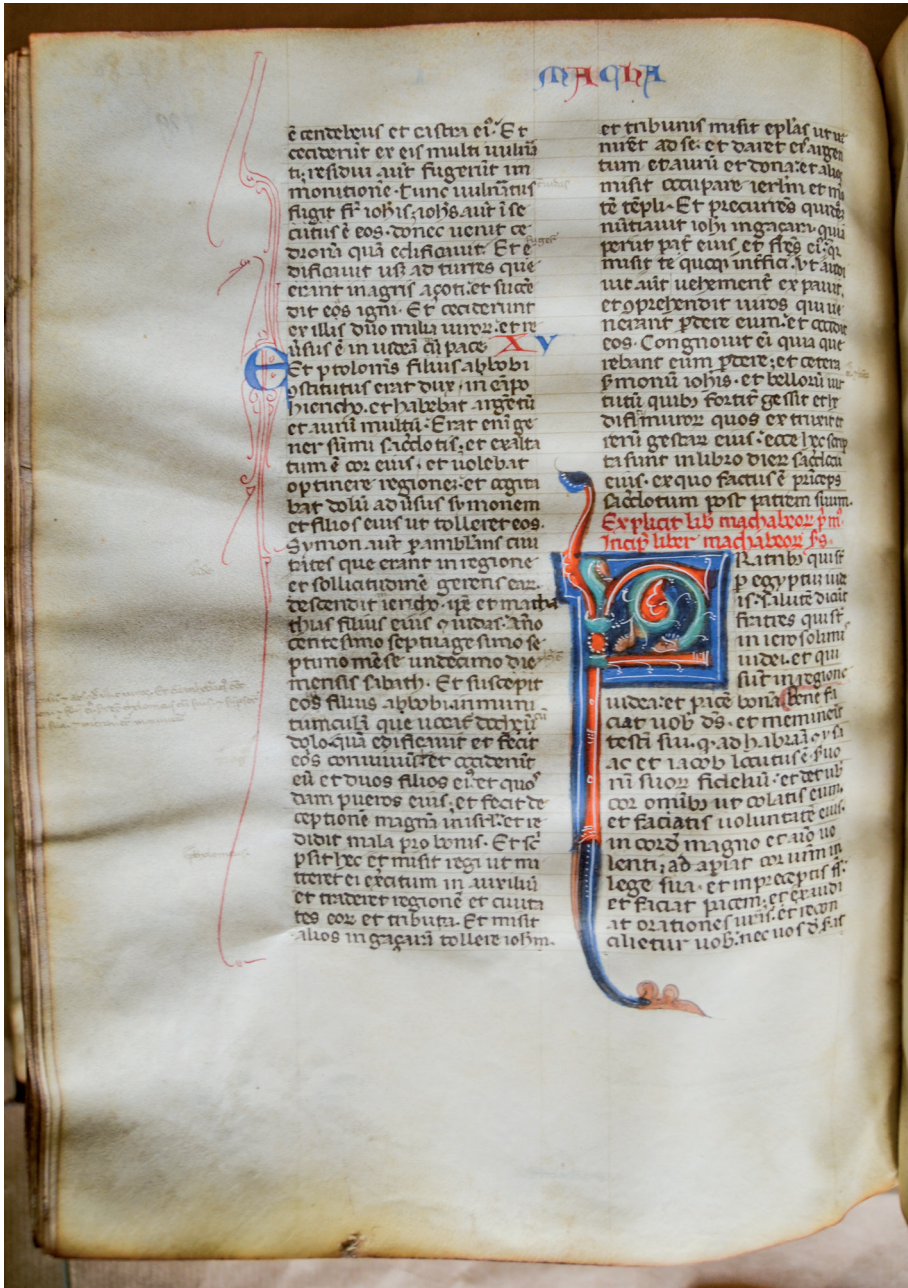 MACHA
ē cendebeus et castra ei᷒. Et
ceciderūt ex eis multi uulnē
ti; residui aut̄ fugerūt in
monitionē. Tunc uulnatus
fugit fr̄ ioh̄is; ioh̄s aut̄ ī se
cutus ē eos. donec uenit ce
dronā quā edificauit. Et e
dificauit usq̄ ad turres que
erant in agris açoti; et succē
dit eos igni. Et ceciderunt
ex illis duo milia uiroꝝ; et re
ūsus ē in iudeā cū pace. XV
Et ptolomīs filius abbobi
ꝯstitutus erat dux. in cāpo
hiericho. et habebat argētū
et aurū multū. Erat enī ge
ner sūmi sac̄dotis; et exalta
tum ē cor eius. et uolebat
optinere regionē; et cogita
bat dolū adūsus symonem
et filios eius ut tolleret eos.
Symon aut̄ pambl̄ans ciui
tates que erant in regione
et sollicitudinē gerens eaꝝ.
descendit iericho. ip̄e et matha
thias filius eius ⁊ iudas. Año
centesimo septuagesimo se
ptimo mēse undecimo die
mensis sabath. Et suscepit
eos filius abbobi in muni
tiunculā que uocat̄ doch cū
dolo. quā edificauit et fecit
eis conuiuiū; et occiderūt
eū et duos filios ei᷒; et quos
dam pueros eius; et fecit de
ceptionē magnā in isrl̄; et re
didit mala pro bonis. Et sc̄
psit hec et misit regi ut mi
tteret ei exc̄itum in auxiliū
et traderet regionē et ciuita
tes eoꝝ et tributa. Et misit
alios in gaçarā tollere ioh̄m.
et tribunis misit epl̄as ut ue
nirēt ad se. et daret eis argen
tum et aurū et dona; et alios
misit occupare ierl̄m et mō
tē tēpli. Et precurrēs quidā
nūtiauit ioh̄i in gaçara. quia
periit pat̄ eius et fr̄es ei᷒. ⁊ q̄
misit te quoq; int̄fici. Vt audi
uit aut̄ uehement̄ expauit.
et ꝯprehendit uiros qui ue
nerant pdere eum; et occidit
eos. Congnouit ei quia que
rebant eum pdere; et cetera
s̄monū ioh̄is. et bellorū uir
tutū quib; fortit̄ gessit et
edif. muroꝝ quos extruxit et
rerū gestaꝝ eius. ecce hec scrip
ta sunt in libro dieꝝ sac̄docii
eius. ex quo factus ē p̄nceps
sac̄dotum post patrem suum.
Explicit lib machabeoꝝ p̄m᷒.
Incip̄ liber machabeoꝝ s̄s.
FRatrib; qui st̄
p egyptū iude
is. salutē dicūt
fratres qui st̄
in ierosolimis
iudei. et qui
sūt in regione
iudea; et pacē bonā. Bene fa
ciat uob̄ ds̄. et meminerit
testi sui. q̄ ad habraā ⁊ ysa
ac et iacob locutus ē. s̄uo
ꝝ suoꝝ fideliū. et det uob̄
cor omīb; ut colatis eum.
et faciatis uoluntatē eius.
in corde magno et aīo uo
lenti; adapiat cor urm̄ in
lege sua. et in preceptis s.
et faciat pacem; et exaudi
at orationes uras; et recon
cilietur uob̄. nec uos d̄serat